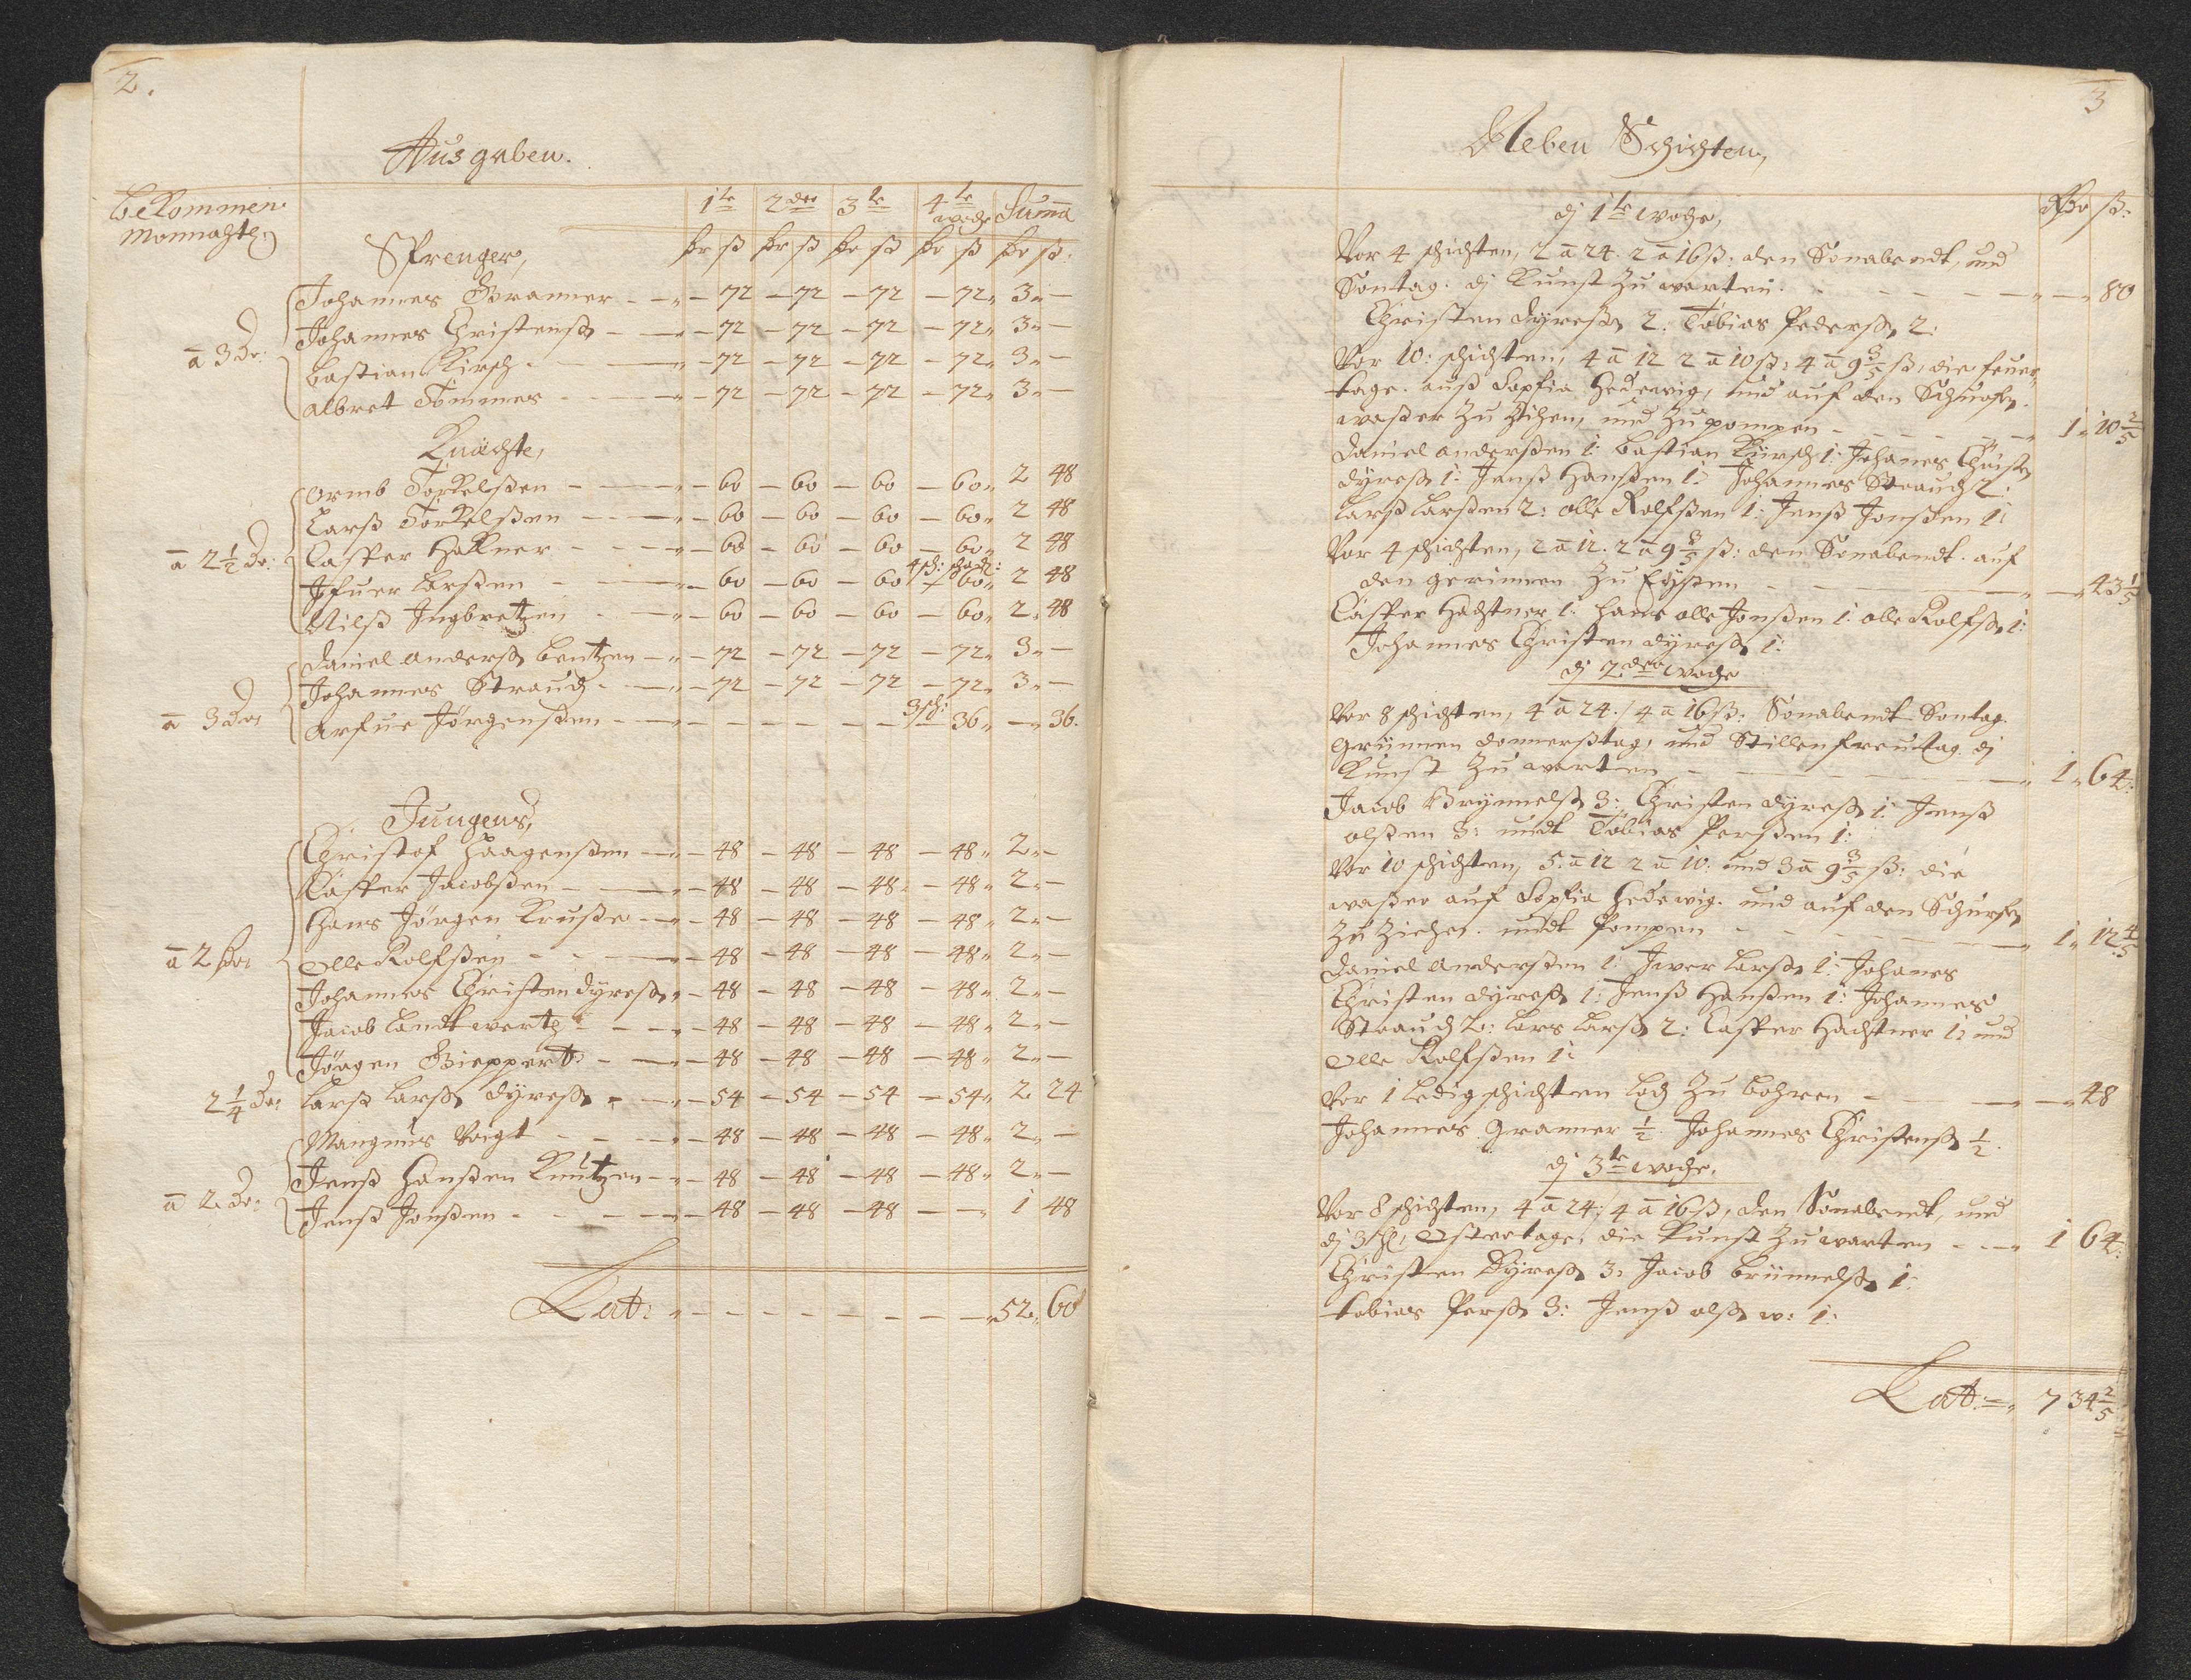 2.
Ausgaben.
bekommen
Monnahtl.
1te 2der 3te 4te woche Suma
Sprenger,
Rdr ß Rdr ß Rdr ß Rdr ß Rdr ß.
Johannes Granner - - - 72 - 72 - 72 - 72 3 -
Johannes Christenß - - 72 - 72 - 72 - 72 3 -
ā 3 Dr:
Bastian Kirsch - - 72 - 72 - 72 - 72 3 -
Albret Tommes - - 72 - 72 - 72 - 72 3 -
Knächte,
Ormb Torkelßen - - 60 - 60 - 60 - 60 2 48
Larß Torkelßen - - 60 - 60 - 60 - 60 2 48
ā 2 1/2 Dr:
Casper Hakner - - 60 - 60 - 60 - 60 2 48
4 sch:
Ifuer Larßen - - 60 - 60 - 60 - 60 2 48
Nilß Ingbretzen - - 60 - 60 - 60 - 60 2 48
Daniel Anderß Bentzen - - 72 - 72 - 72 - 72 3 -
Johannes Strauch - - 72 - 72 - 72 - 72 3 -
ā 3 Dr
3 sch:
Arfue Jörgenßen - - - - - - 36 - 36.
Jungens,
Christof Haagenßen - - 48 - 48 - 48 - 48 2 -
Casper Jacobßen - - 48 - 48 - 48 - 48 2 -
Hans Jörgen Kruße - - 48 - 48 - 48 - 48 2 -
ā 2 Dr
Olle Rolfßen - - 48 - 48 - 48 - 48 2 -
Johannes Christen dyreß - 48 - 48 - 48 - 48 2 -
Jacob Landtwertz - - 48 - 48 - 48 - 48 2 -
Jörgen Gieppert - - 48 - 48 - 48 - 48 2 -
2 1/4 Dr:
Larß Larß dyreß - - 54 - 54 - 54 - 54 2 24
Mangnus Voigt - - 48 - 48 - 48 - 48 2 -
Jenß Hanßen Knutzen - - 48 - 48 - 48 - 48 2 -
ā 2 Dr:
Jenß Jonßen - - 48 - 48 - 48 - - 1 48
Lat: - - - - - - - 52 60
3
Neben Schichten,
Rdr ß:
dj 1te woche,
Vor 4 schichten, 2 ā 24. 2 ā 16 ß. den Sonabendt, und
Sontag. dj Kunst zu warten. - - - 80
Christen dyreß 2. Tobias Pederß 2:
Vor 10: schichten, 4 ā 12 2 ā 10 ß: 4 ā 9 3/5 ß, die feuer
tage. auß Sopfia Hedewig, und auf den Schurfe
waßer zu zihen, und zu pompen - - - 1 10 2/5
Daniel Anderßen 1: Bastian Kirsch 1: Johanes Christ
dyreß 1: Jenß Hanßen 1: Johannes Strauch 2:
Larß Larßen 2: Olle Rolfßen 1: Jenß Jonßen 1:
Vor 4 schichten, 2 ā 12. 2 ā 9 3/5 ß: den Sonabendt. auf
den gerinnen zu Eyßen - - - 43 1/5
Casper Hachtner 1: Hans Olle Jonßen 1: Olle Rolfß 1:
Johannes Christen dyreß 1:
dj 2der woche
Vor 8 schichten, 4 ā 24./ 4 ā 16 ß: Sonabendt Sontag.
Grünnen donnerßtag, und Stillenfreutag. dj
Kunst zu warten - - - 1 64:
Jacob Brynnelß 3: Christen dyreß 1: Jenß
Olßen 3: undt Tobias Perßen 1:
Vor 10 schichten, 5. ā 12 2 ā 10: und 3 ā 9 3/5 ß: die
waßer auf Sopfia Hedewig. und auf den Schurfe
zu ziehen. undt Pompen - - - 1 12 4/5
Daniel Anderßen 1: Iwer Larß 1: Johanes
Christen dyreß 1: Jenß Hanßen 1: Johannes
Strauch 2: Lars Larß 2: Casper Hachtner 1: und
Olle Rolfßen 1:
Vor 1 ledig schichten Loch zu bohren - - - 48
Johannes Granner 1/2. Johannes Christenß 1/2.
dj 3te woche.
Vor 8 schichten, 4 ā 24; 4 ā 16 ß, den Sonabendt, und
dj 3 hl. Ostertage, die Kunst zu warten - - 1 64:
Christen Dyreß 3. Jacob Brünnelß 1:
Tobias Perß 3: Jenß Olß 1:
Lat: 7 34 2/5